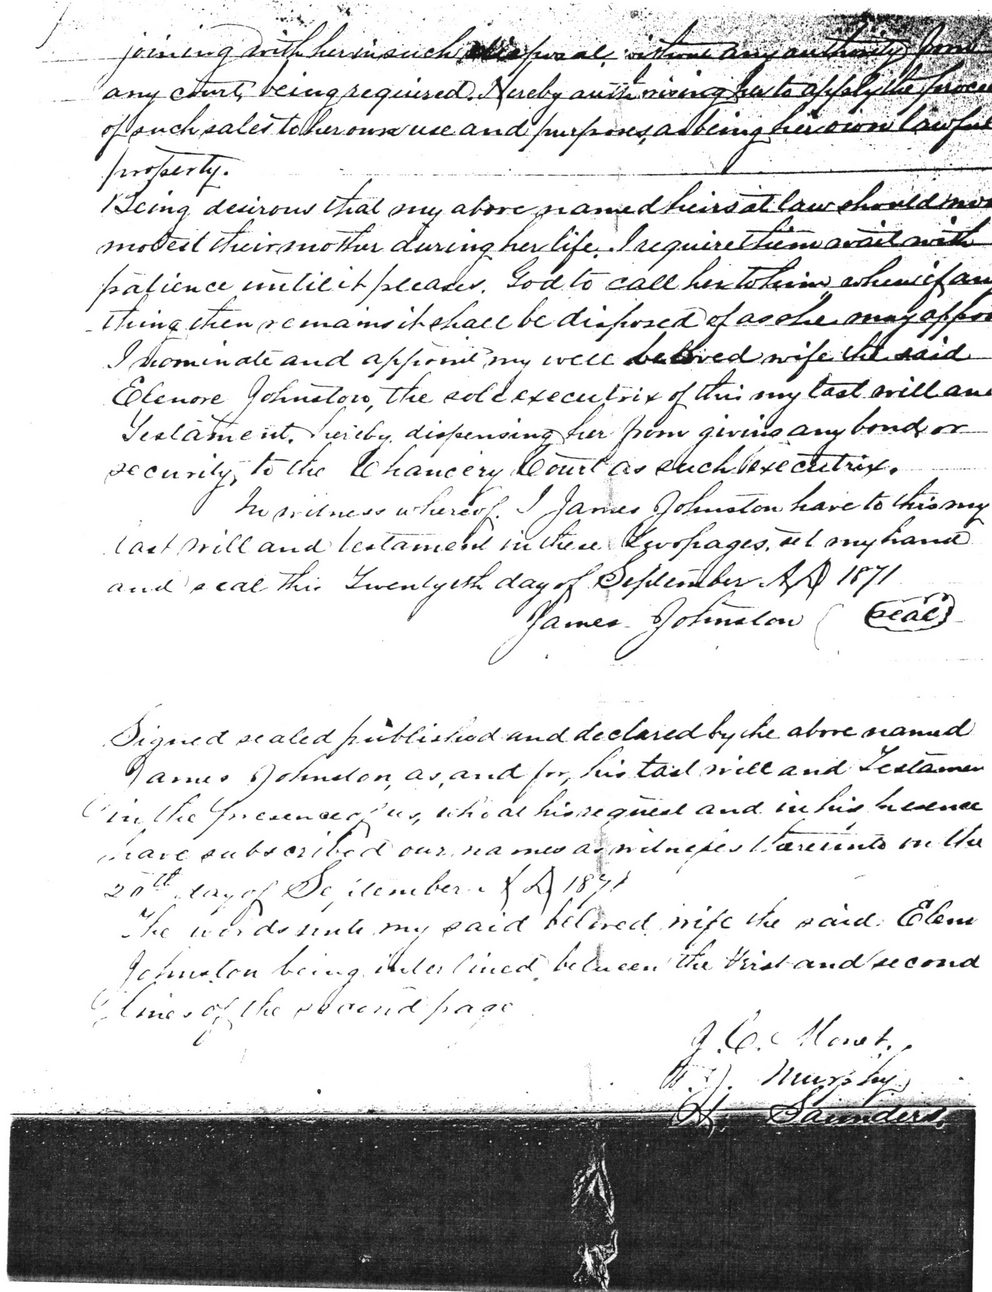 joining with her in such disposal without any authority from
any court, being required. Hereby authorising her to apply the procee
of such sales to her own use and purposes, as being her own lawful
property.
Being desirous that my above named heirs at law should not
molest their mother during her life. I require them await with
patience until it pleases, God to call her to him, when if any
thing then remains it shall be disposed of as she may appoi
I nominate and appoint my well beloved wife the said
Elenore Johnston, the sole executrix of this my last will and
Testament. hereby dispensing her from giving any bond, or
security, to the Chancery Court as such executrix.
In witness whereof, I James Johnston have to this my
last will and testament in these two pages, set my hand
and seal this Twentyeth day of September AD 1871
James Johnston (seal)
Signed sealed published and declared by the above named
James Johnston, as, and for, his last will and Testamen
in the presence of us, who at his request and in his presence
have subscribed our names as witnesses thereunto on the
20th day of September AD 1871
The words unto my said beloved wife the said Elen
Johnston being interlined between the first and second
lines of the second page
J. C. 
Murphy,
H. Saunders,